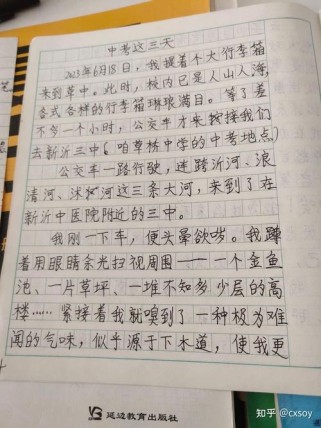 中考这三天
2023年6月18日，我提着个大行李箱
来到草中。此时，校内已是人山人海，
各式各样的行李箱琳琅满目。等了差
不多一个小时，公交车才来接我们
去新沂三中（咱草桥中学的中考地点）
公交车一路行驶，途跨沂河、浪
清河、沭河这三条大河，来到了在
新沂中医院附近的三中。
我刚一下车，便头晕欲呕。我蹲
着用眼睛余光扫视周围——一个金鱼
池、一片草坪、一堆不知多少层的高
楼……紧接着我就嗅到了一种极为难
闻的气味，似乎源于下水道，使我更
延边教育出版社
知乎 @cxsoy